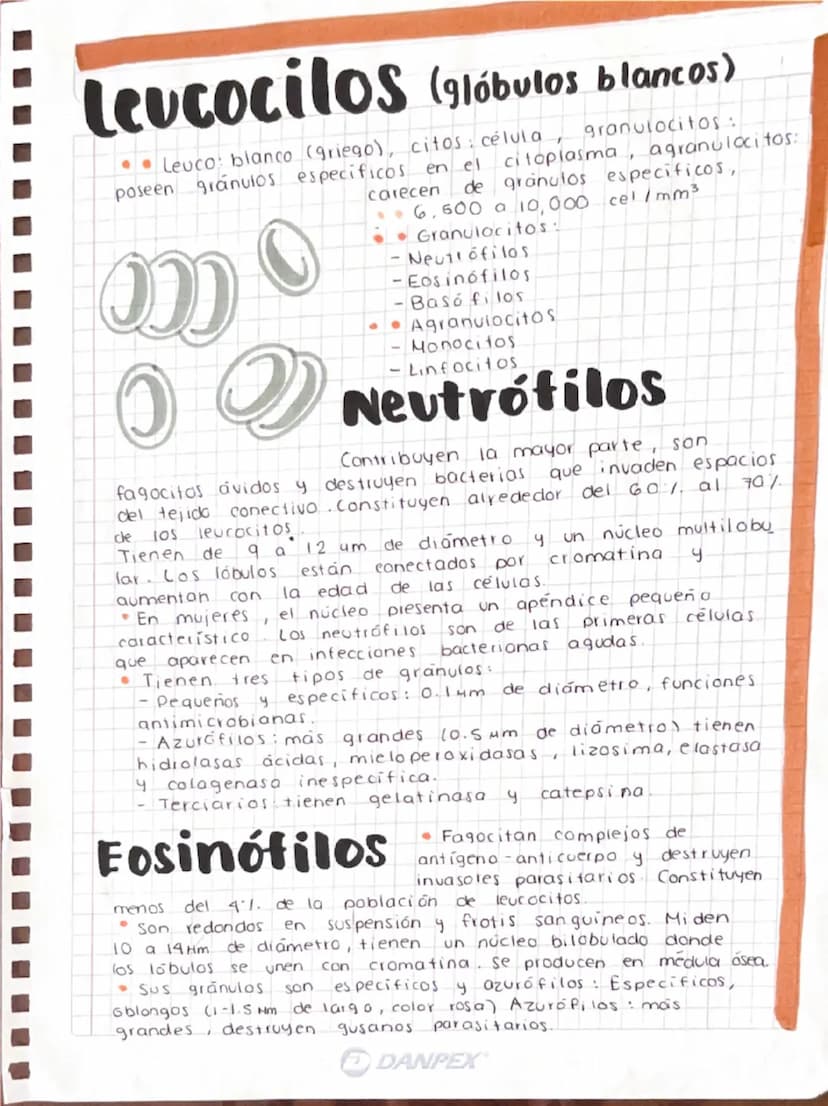 Leucocitos (glóbulos blancos)
• • Leuco: blanco (griego), citos: célula, granulocitos:
poseen gránulos específicos en el citoplasma, agranulocitos:
carecen de gránulos específicos,
• • 6,500 a 10,000 cel/mm³
• • Granulocitos:
- Neutrófilos
- Eosinófilos
- Basófilos
• • Agranulocitos
- Monocitos
- Linfocitos
Neutrófilos
Contribuyen la mayor parte, son
fagocitos ávidos y destruyen bacterias que invaden espacios
del tejido conectivo. Constituyen alrededor del 60% al 70%
de los leucocitos.
Tienen de 9 a 12 um de diámetro y un núcleo multilobu
lar. Los lóbulos están conectados por cromatina y
aumentan con la edad de las células.
• En mujeres, el núcleo presenta un apéndice pequeño
característico. Los neutrófilos son de las primeras células
que aparecen en infecciones bacterianas agudas.
• Tienen tres tipos de gránulos:
- Pequeños y específicos: 0.1µm de diámetro, funciones
antimicrobianas.
- Azurófilos: más grandes (0.5 µm de diámetro) tienen
hidrolasas ácidas, mieloperoxidasas, lizosima, elastasa
y colagenasa inespecífica.
- Terciarios: tienen gelatinasa y catepsina.
Eosinófilos
• Fagocitan complejos de
antígeno-anticuerpo y destruyen
invasores parasitarios. Constituyen
menos del 4% de la población de leucocitos.
• Son redondos en suspensión y frotis sanguíneos. Miden
10 a 14µm de diámetro, tienen un núcleo bilobulado donde
los lóbulos se unen con cromatina. Se producen en médula ósea.
• Sus gránulos son específicos y azurófilos: Específicos,
oblongos (1-1.5 µm de largo, color rosa) Azurófilos: más
grandes, destruyen gusanos parasitarios.
DANPEX